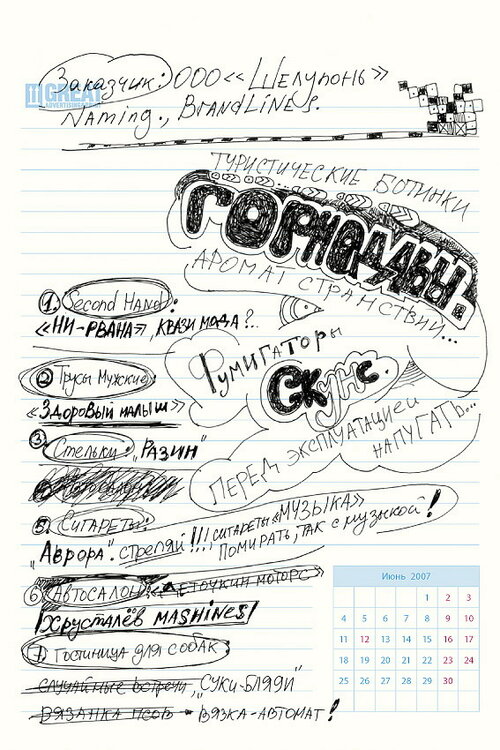 Заказчик: ООО «Шелупонь»
GREAT
ADVERTISING
Naming., BRANDLINES.
ТУРИСТИЧЕСКИЕ БОТИНКИ
ГОРНАДАВЫ.
АРОМАТ СТРАНСТВИЙ...
1. Second HAND:
«НИ-РВАНА», КВАЗИ МОДА?..
Фумигаторы
Скунс.
ПЕРЕД ЭКСПЛУАТАЦИЕЙ
НАПУГАТЬ...
2 Трусы Мужские:
«Здоровый малыш»
3. Стельки: „РАЗИН"
5. Сигареты:
„Аврора". стреляй!!! СИГАРЕТЫ «МУЗЫКА»
ПОМИРАТЬ, ТАК с музыкой!
6 АВТОСАЛОН: «ЛЕТОЧКИН МОТОРС»
Хрусталёв MASHINES!
7 Гостиница для собак
СЛУЧАЙНЫЕ ВСТРЕЧИ, „СУКИ-БЛЯДИ"
ВЯЗАНКА ПСОВ - ВЯЗКА-АВТОМАТ!
Июнь 2007
1 2 3
4 5 6 7 8 9 10
11 12 13 14 15 16 17
18 19 20 21 22 23 24
25 26 27 28 29 30